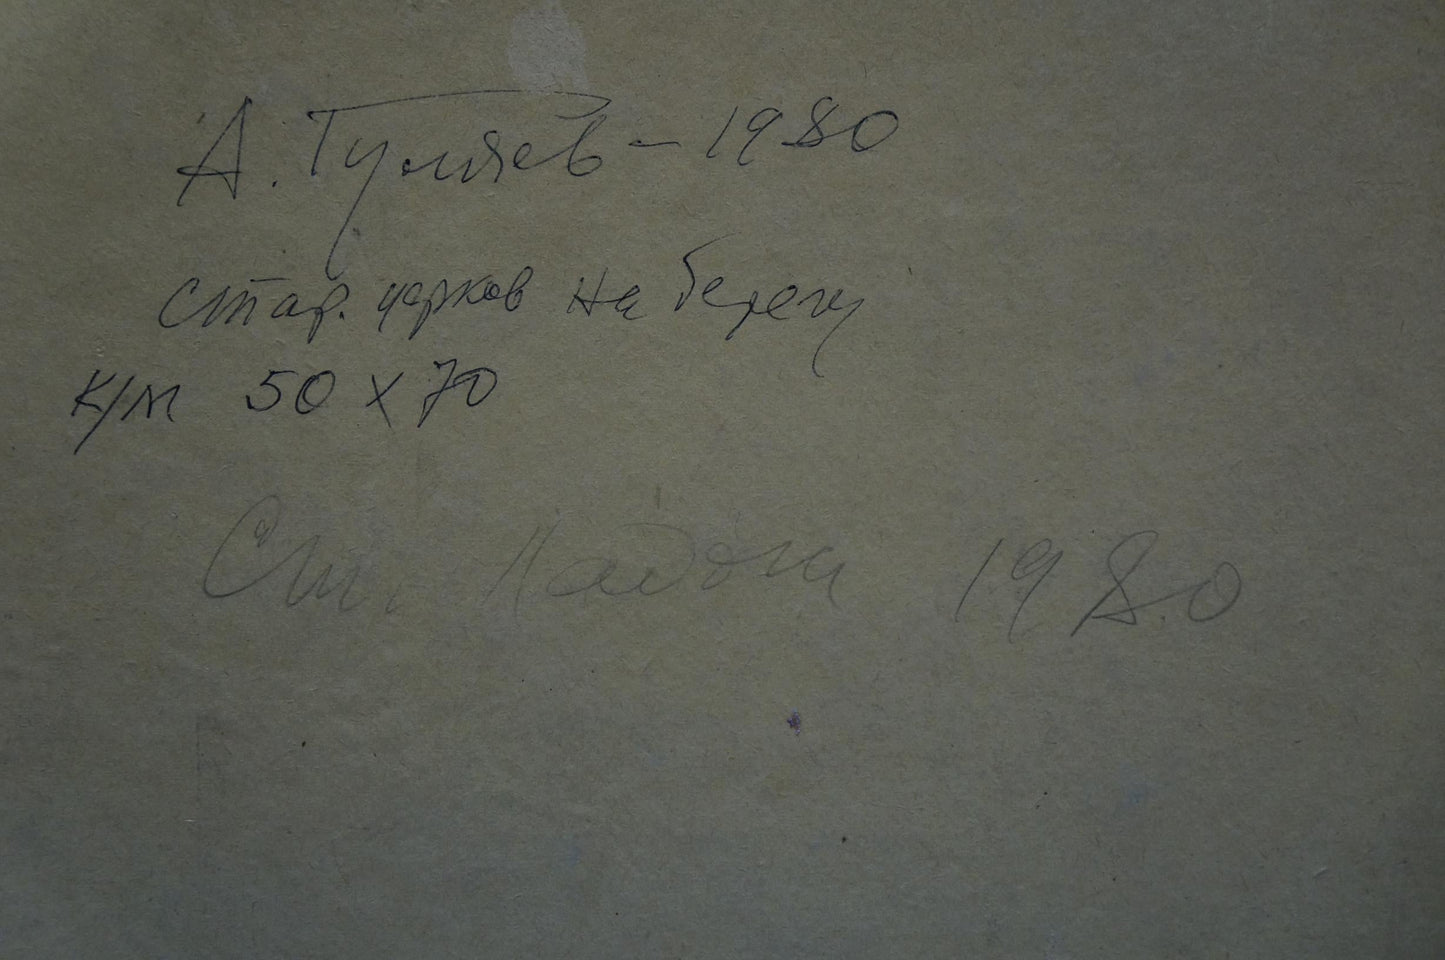 А. Гуляев – 1980
стар. церков на берегу
к/м 50 х 70
Ст. Ладога 1980